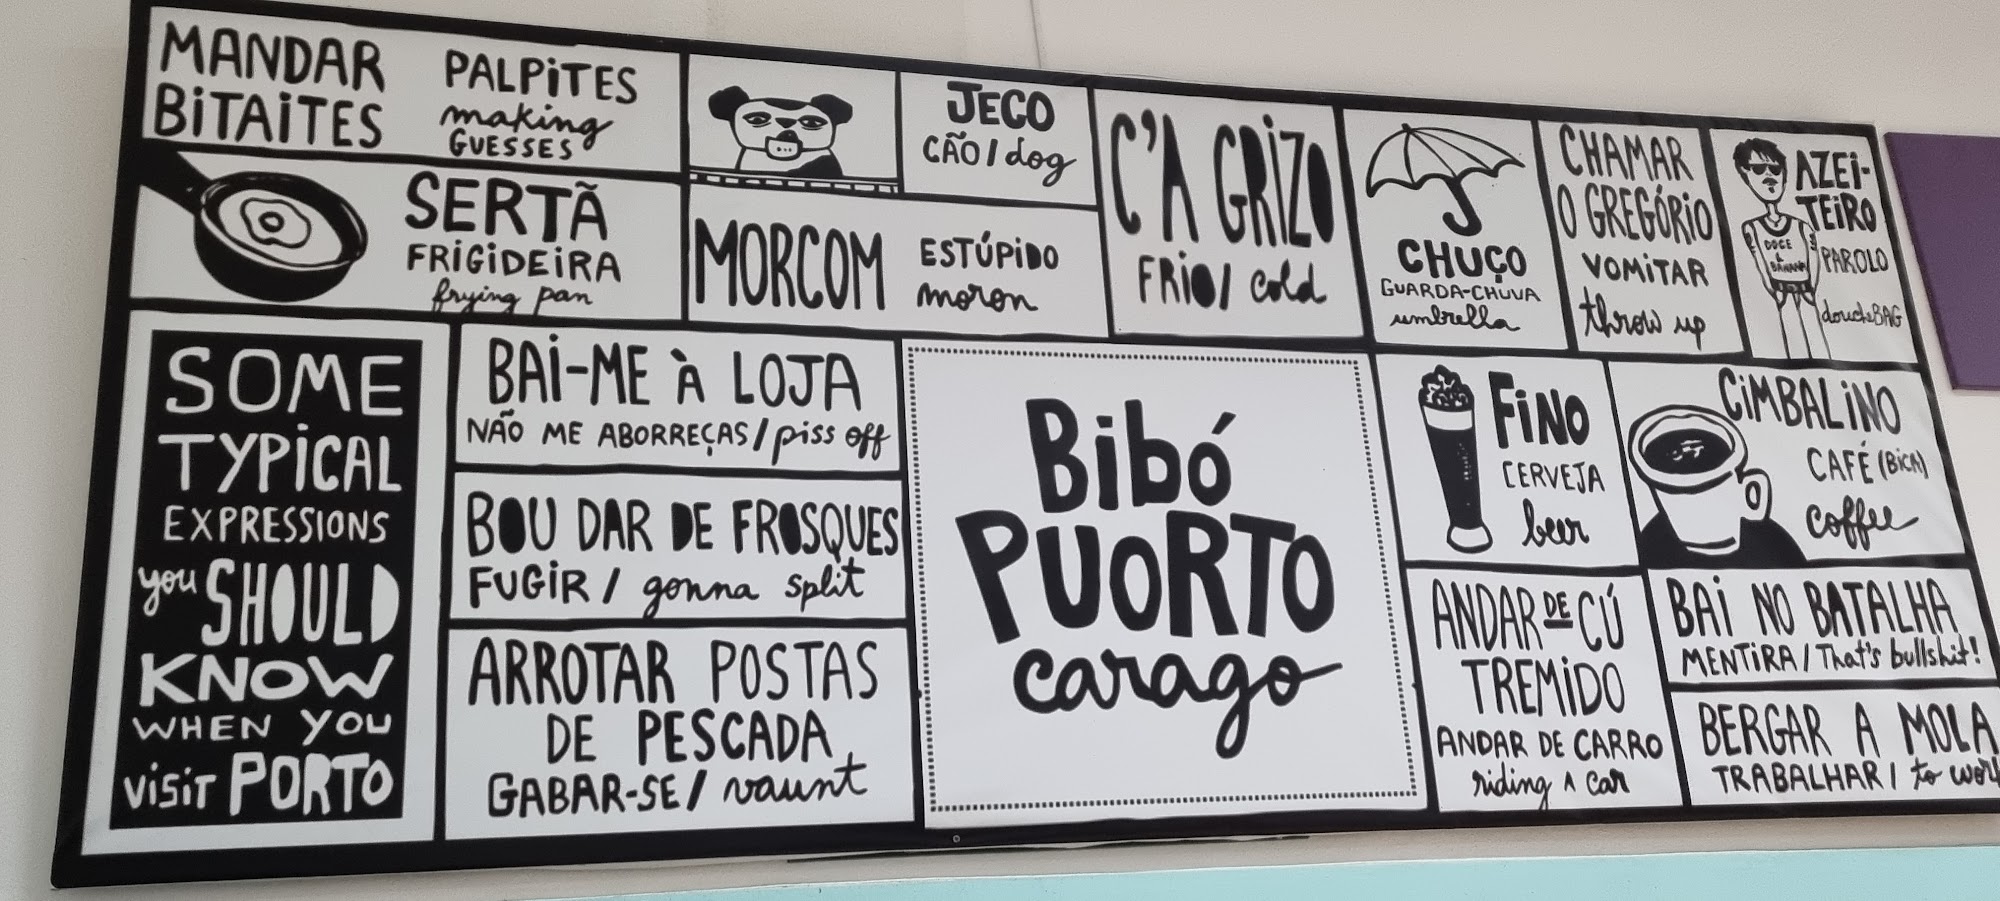 MANDAR
BITAITES
PALPITES
making
GUESSES
SERTÃ
FRIGIDEIRA
frying pan
JECO
CÃO / dog
MORCOM
ESTÚPIDO
moron
C'A GRIZO
FRIO / cold
CHUÇO
GUARDA-CHUVA
umbrella
CHAMAR
O GREGÓRIO
VOMITAR
throw up
AZEI-
TEIRO
PAROLO
doucheBAG
DOCE
BANANA
SOME
TYPICAL
EXPRESSIONS
you SHOULD
KNOW
WHEN YOU
VISIT PORTO
BAI-ME À LOJA
NÃO ME ABORREÇAS / piss off
BOU DAR DE FROSQUES
FUGIR / gonna split
ARROTAR POSTAS
DE PESCADA
GABAR-SE / vaunt
Bibó
PUORTO
carago
FINO
CERVEJA
beer
CIMBALINO
CAFÉ (BICA)
coffee
ANDAR DE CÚ
TREMIDO
ANDAR DE CARRO
riding A car
BAI NO BATALHA
MENTIRA / That's bullshit!
BERGAR A MOLA
TRABALHAR / to wor